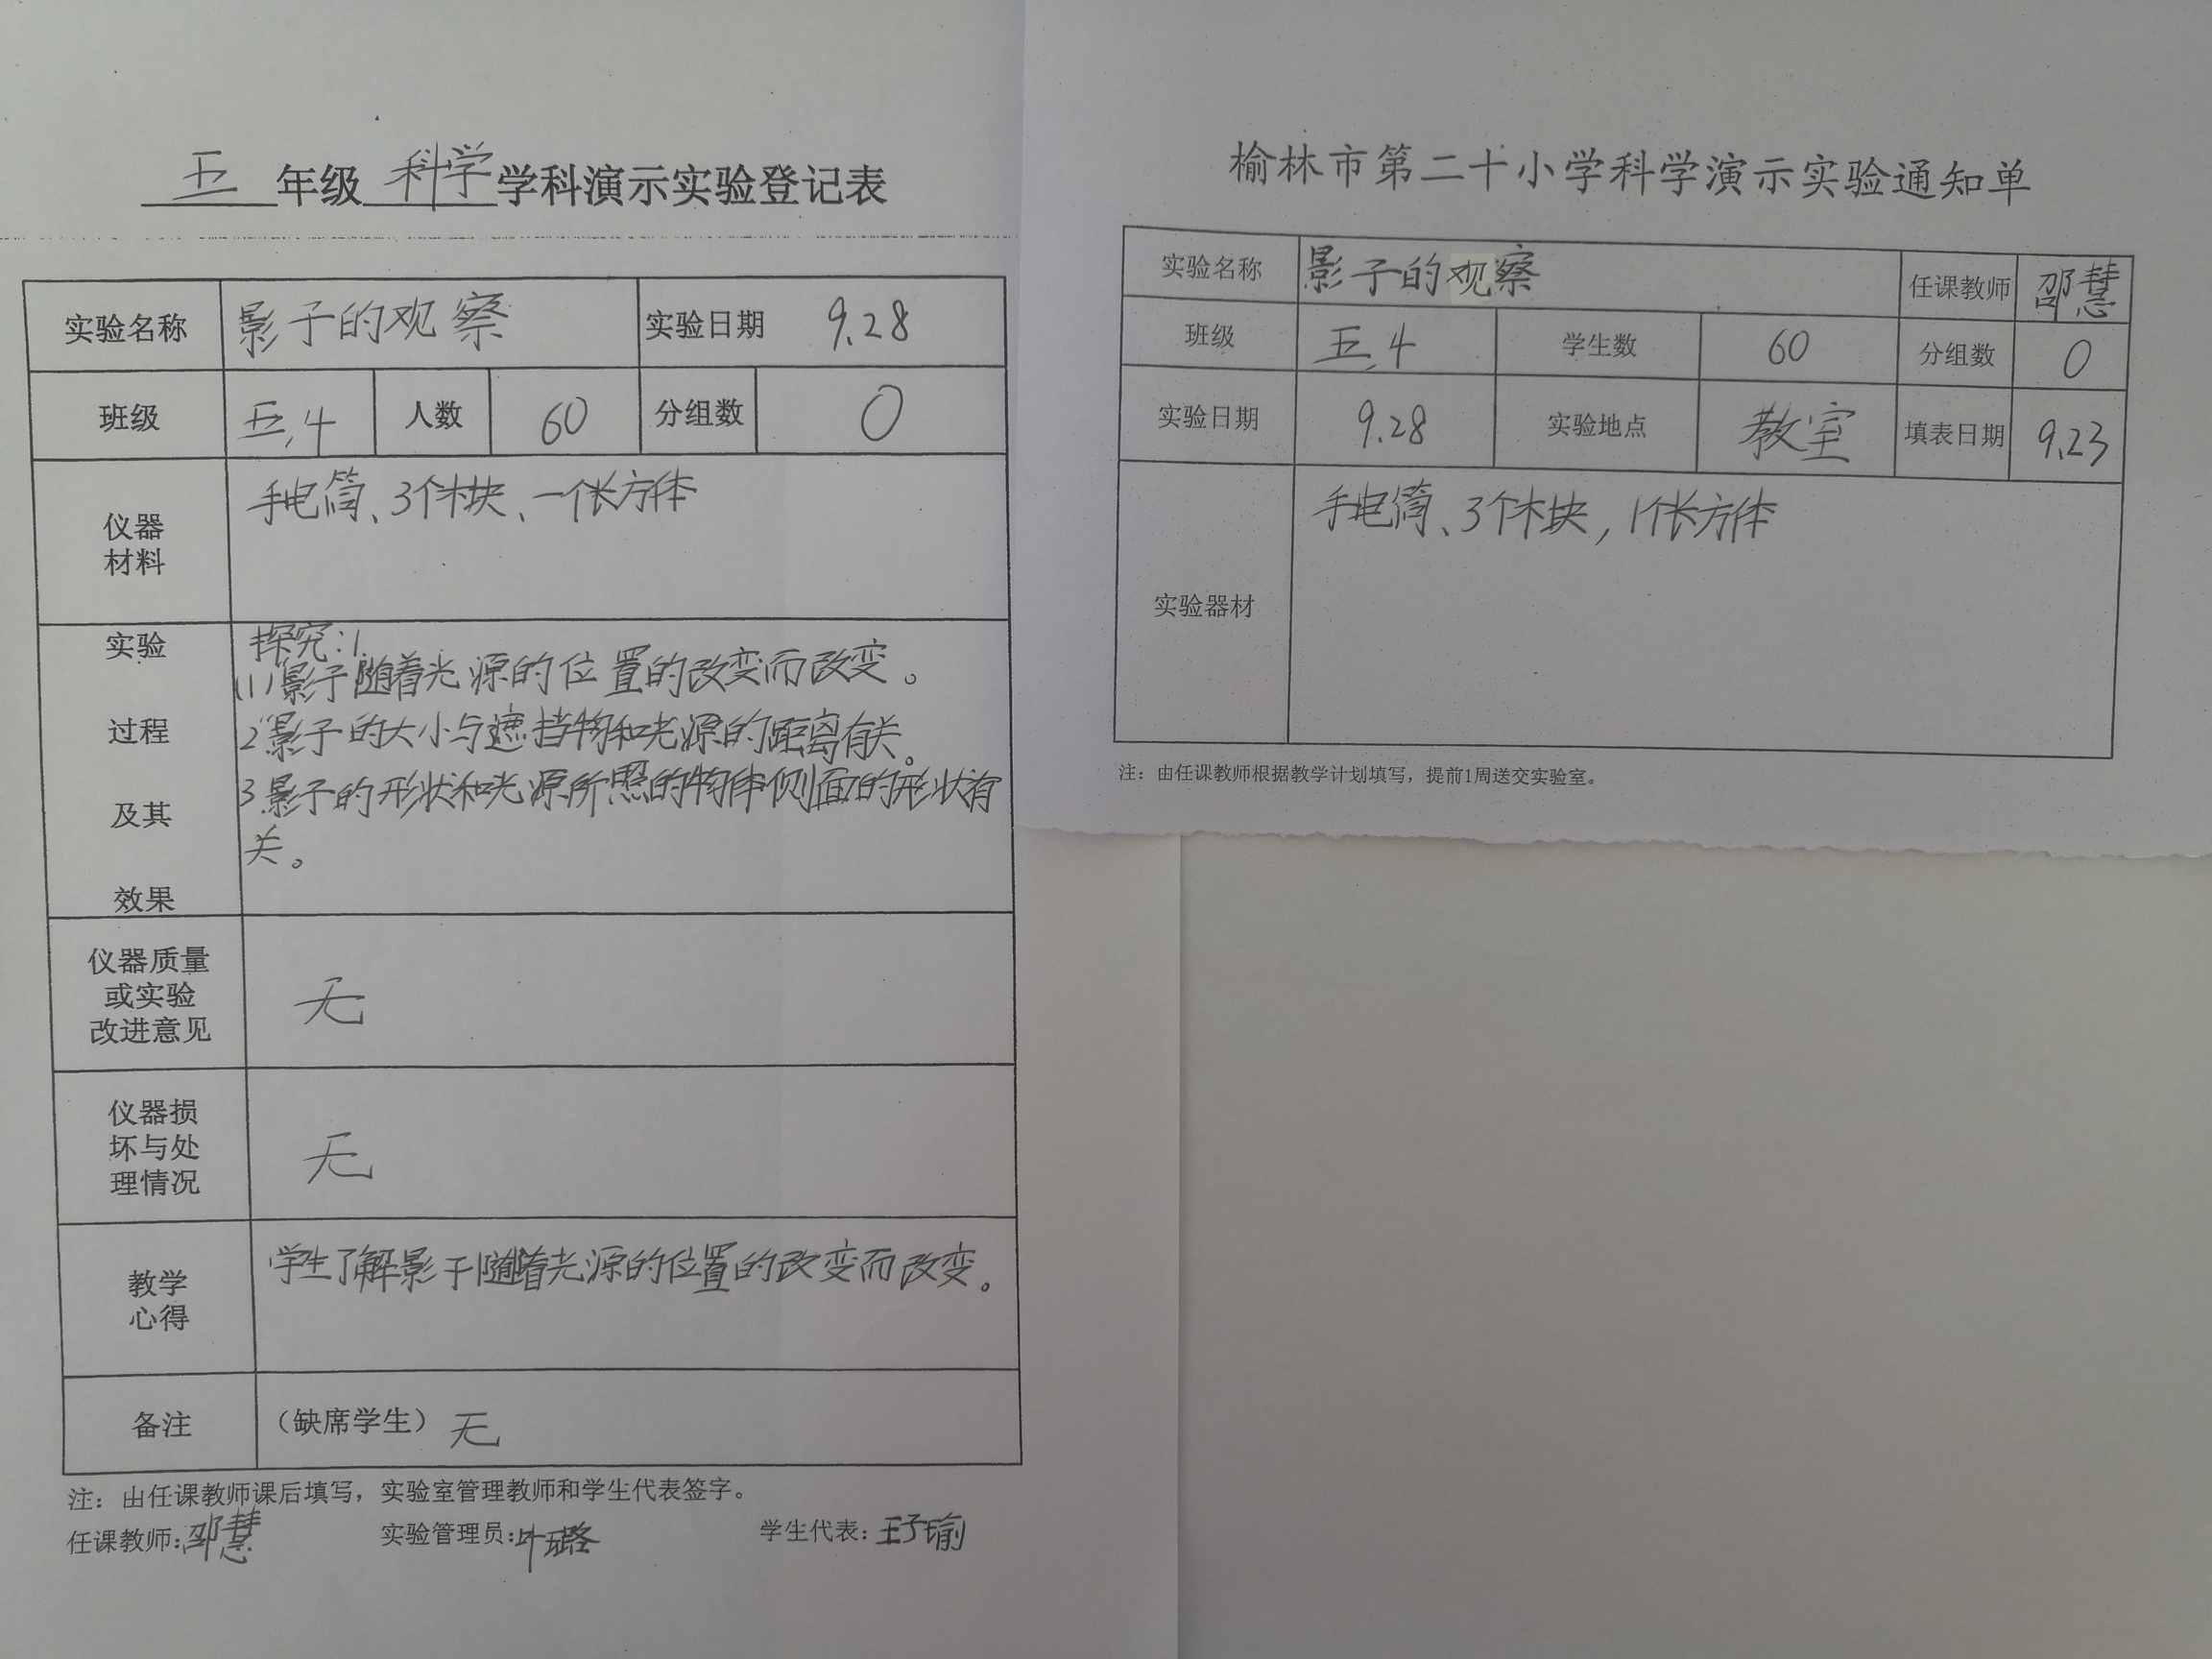 五年级科学学科演示实验登记表
实验名称 影子的观察 实验日期 9.28
班级 五.4 人数 60 分组数 0
仪器
材料
手电筒、3个木块、一个长方体
实验
过程
及其
效果
探究:1.
(1)影子随着光源的位置的改变而改变。
2 影子的大小与遮挡物和光源的距离有关。
3 影子的形状和光源所照的物体侧面的形状有
关。
仪器质量
或实验
改进意见
无
仪器损
坏与处
理情况
无
教学
心得
学生了解影子随着光源的位置的改变而改变。
备注 (缺席学生) 无
注:由任课教师课后填写,实验室管理教师和学生代表签字。
任课教师:邵慧 实验管理员:叶璐 学生代表:王子瑜
榆林市第二十小学科学演示实验通知单
实验名称 影子的观察 任课教师 邵慧
班级 五.4 学生数 60 分组数 0
实验日期 9.28 实验地点 教室 填表日期 9.23
实验器材 手电筒、3个木块,1个长方体
注:由任课教师根据教学计划填写,提前1周送交实验室。